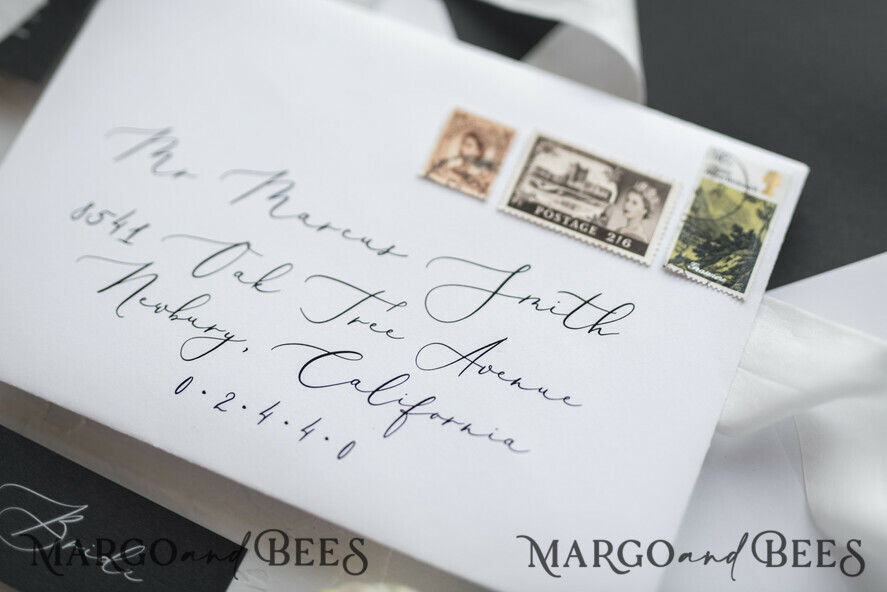 Mr Marcus Smith
8541 Oak Tree Avenue
Newbury, California
0.2.4.4.0
POSTAGE 2/6
Bride
MARGO and BEES
MARGO and BEES